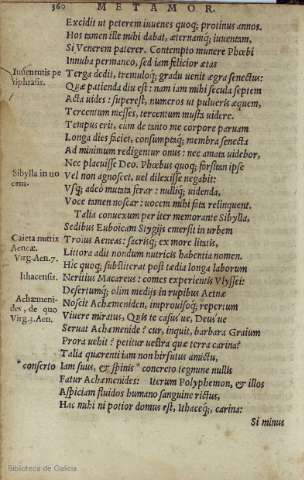 360 METAMOR.
Excidit ut peterem iuuenes quoq; protinus annos.
Hos tamen ille mihi dabat, æternamq; iuuentam,
Si Venerem paterer. Contempto munere Phœbi
Innuba permaneo, sed iam felicior ætas
Iuuentutis pe
riphrasis.
Terga dedit, tremuloq; gradu uenit ægra senectus:
Quæ patienda diu est: nam iam mihi secula septem
Acta uides: superest, numeros ut pulueris æquem,
Tercentum messes, tercentum musta uidere.
Tempus erit, cum de tanto me corpore paruam
Longa dies faciet, consumptaq; membra senecta
Ad minimum redigentur onus: nec amata uidebor,
Nec placuisse Deo. Phœbus quoq; forsitan ipse
Sibylla in uo
cem.
Vel non agnoscet, uel dilexisse negabit:
Vsq; adeò mutata ferar: nulliq; uidenda,
Voce tamen noscar: uocem mihi fata relinquent.
Talia conuexum per iter memorante Sibylla,
Sedibus Euboicam Stygijs emersit in urbem
Caieta nutrix
Aeneæ.
Virg. Aen. 7.
Troius Aeneas: sacrisq; ex more litatis,
Littora adit nondum nutricis habentia nomen.
Hic quoq; substiterat post tædia longa laborum
Ithacensis.
Neritius Macareus: comes experientis Vlyssei:
Desertumq; olim medijs in rupibus Aetnæ
Achæmeni-
des, de quo
Virg. 3. Aen.
Noscit Achæmeniden, improuisoq; repertum
Viuere miratus, Quis te casus'ue, Deus'ue
Seruat Achæmenide? cur, inquit, barbara Graium
Prora uehit? petitur uestra quæ terra carina?
Talia quærenti iam non hirsutus amictu,
conserto
Iam suus, et spinis concreto tegmine nullis
Fatur Achæmenides: Iterum Polyphemon, et illos
Aspiciam fluidos humano sanguine rictus,
Hac mihi ni potior domus est, Ithaceq;, carina:
Si minus
Biblioteca de Galicia